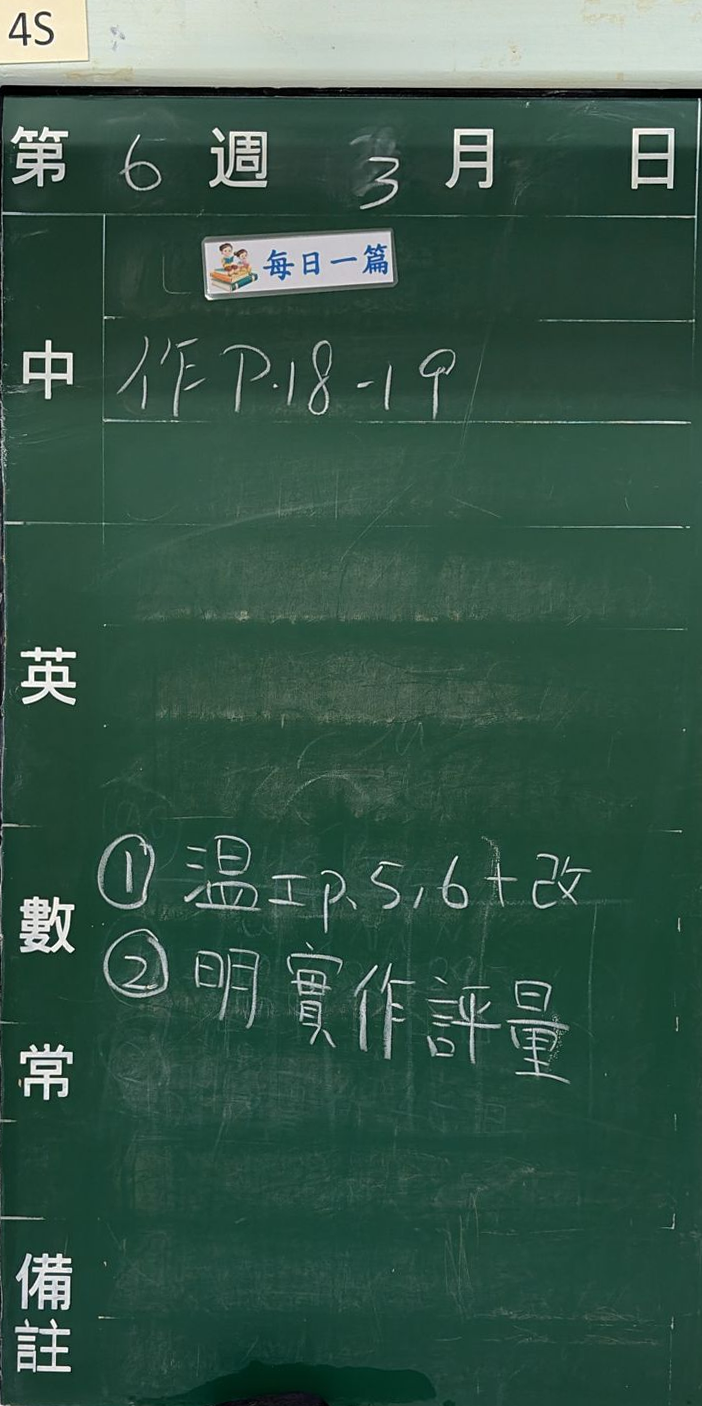 4S
第 6 週 3 月 日
每日一篇
中 作 P.18-19
英
數 ① 温工p.5,6+改
② 明實作評量
常
備註